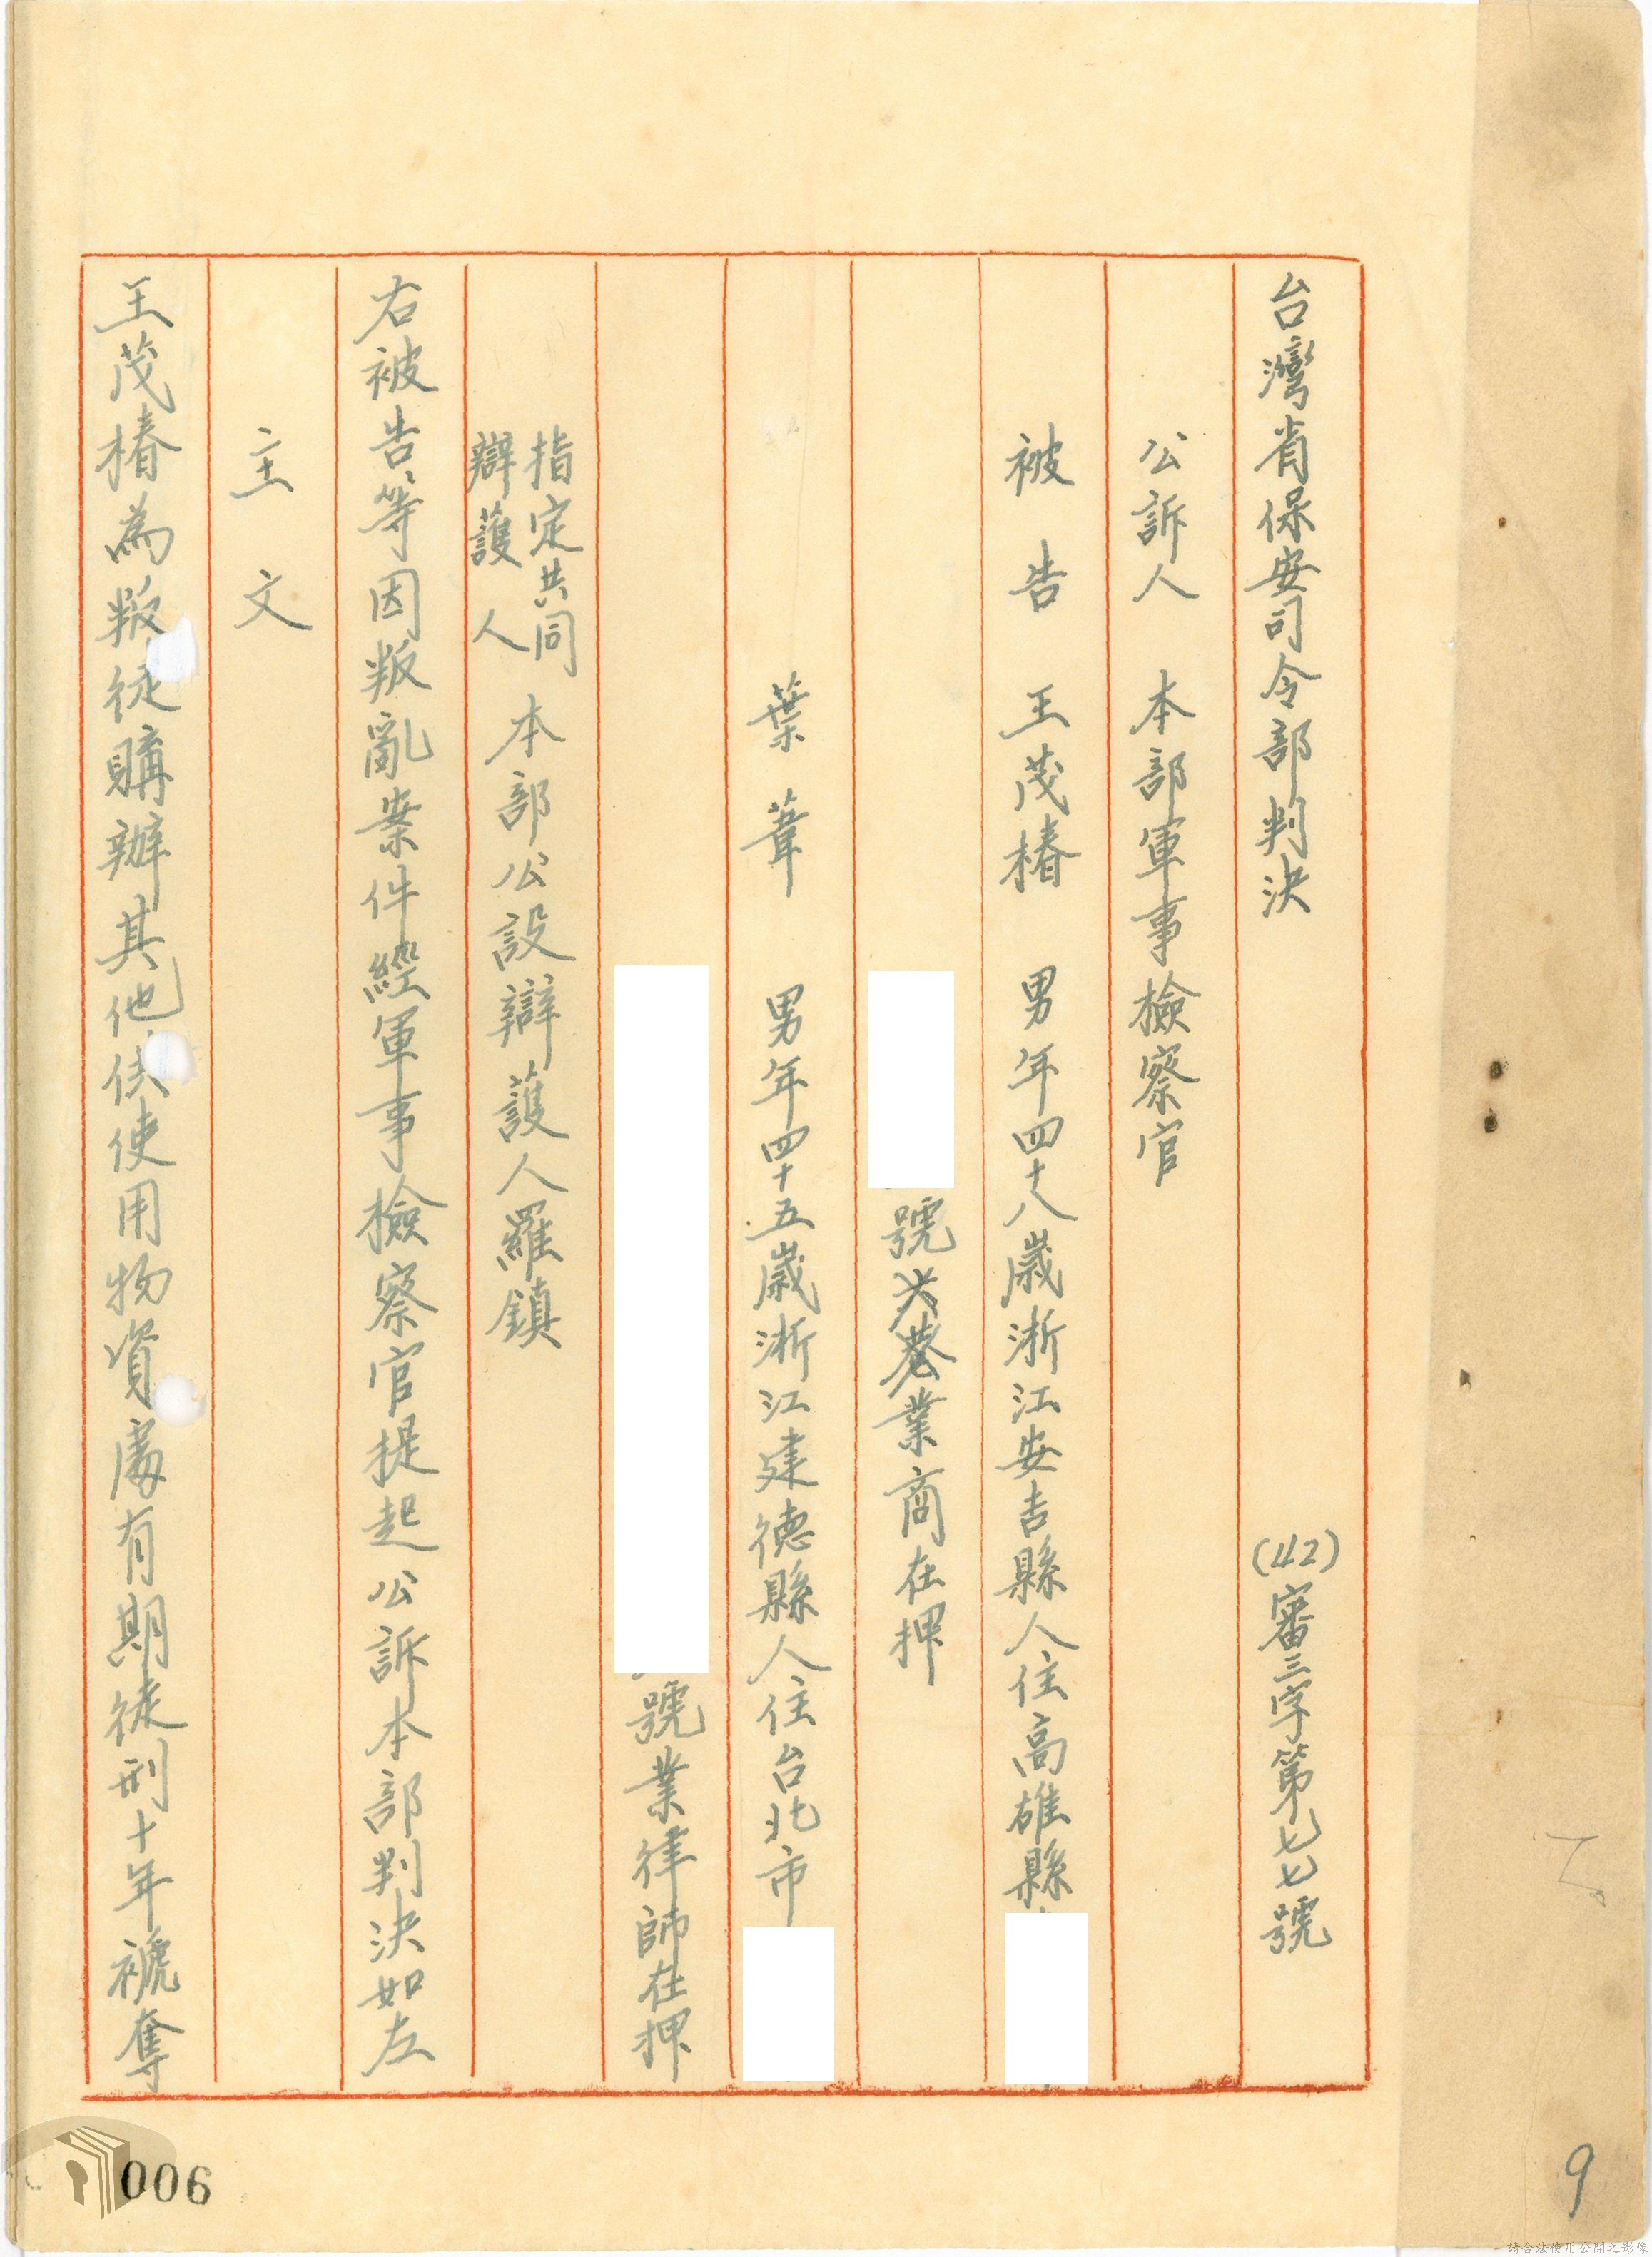 台灣省保安司令部判決　(42)審三字第七七號
公訴人　本部軍事檢察官
被告　王茂椿　男年四十八歲浙江安吉縣人住高雄縣
號業商在押
葉葦　男年四十五歲浙江建德縣人住台北市
號業律師在押
指定共同
辯護人　本部公設辯護人羅鎮
右被告等因叛亂案件經軍事檢察官提起公訴本部判決如左
主文
王茂椿為叛徒購辦其他供使用物資處有期徒刑十年褫奪
006
9
請合法使用公開之影像